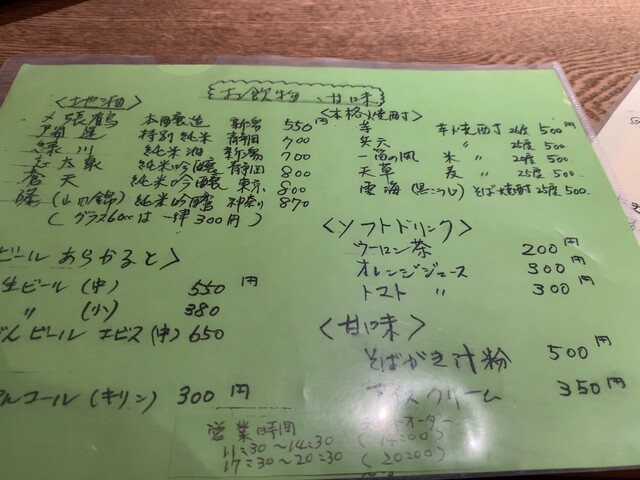 お飲物 甘味
<地酒>
〆張鶴 本醸造 新潟 550円
開運 特別純米 静岡 700
緑川 純米酒 新潟 700
志太泉 純米吟醸 静岡 800
蒼天 純米吟醸 東京 800
隆(山田錦) 純米吟醸 神奈川 870
(グラス60ccは一律300円)
ビールあらかると>
生ビール(中) 550円
〃 (小) 380
びんビール エビス(中) 650
アルコール(キリン) 300円
<本格焼酎>
芋焼酎 25度 500円
〃 25度 500円
一笛の風 米 〃 25度 500円
天草 麦 〃 25度 500.
雲海(黒こうじ) そば焼酎25度 500.
<ソフトドリンク>
ウーロン茶 200円
オレンジジュース 300円
トマト 〃 300円
<甘味>
そばがき汁粉 500円
アイスクリーム 350円
営業時間 ラストオーダー
11:30~14:30 (14:00)
17:30~20:30 (20:00)